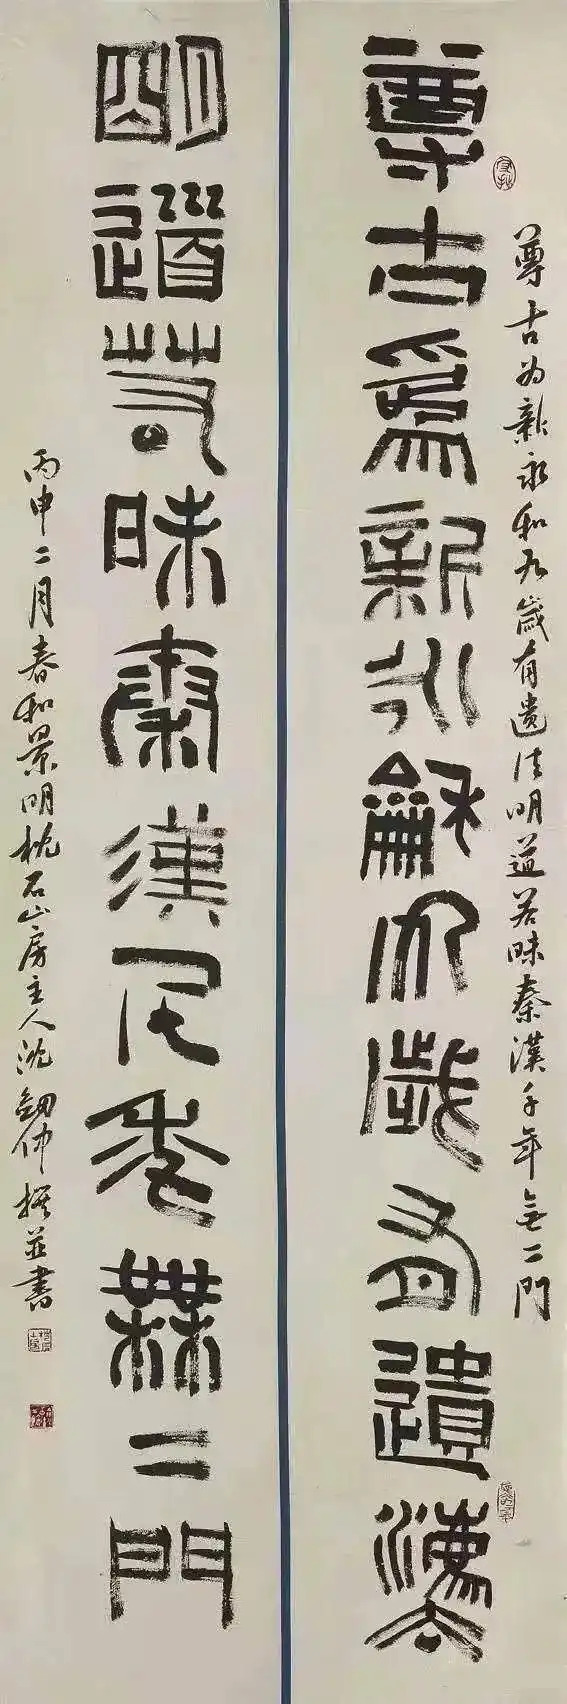 尊古爲新永龢九歲有遺灋
尊古为新永和九歲有遗法明道若昧秦漢千年無二門
明道若昧秦漢千年無二門
丙申二月春和景明枕石山房主人沈劍仲撰並書